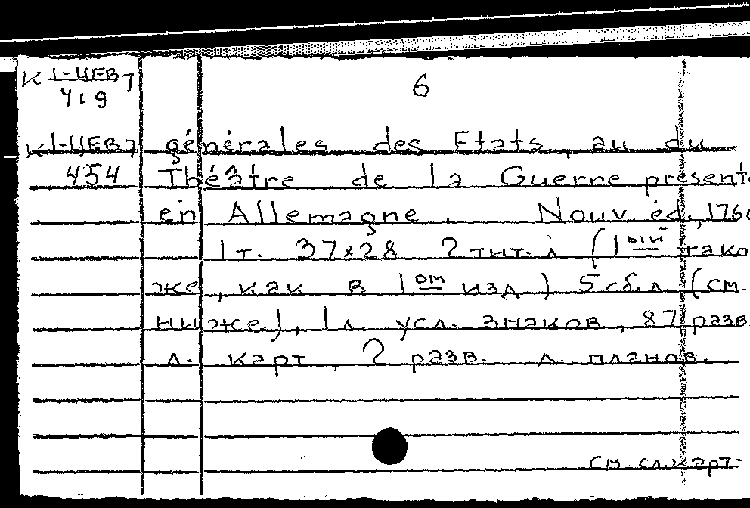 К 1-ЦЕВ7 6
419
К1-ЦЕВ7 générales des Etats, au du
454 Théâtre de la Guerre présent
en Allemagne. Nouv. éd., 1760
1 т. 37×28 2 тит. л (1ый тако
же, как в 1ом изд.) 5 сб.л (см.
ниже), 1л. усл. знаков, 87 разв.
л. карт, 2 разв. л. планов.
см. сл. карт.